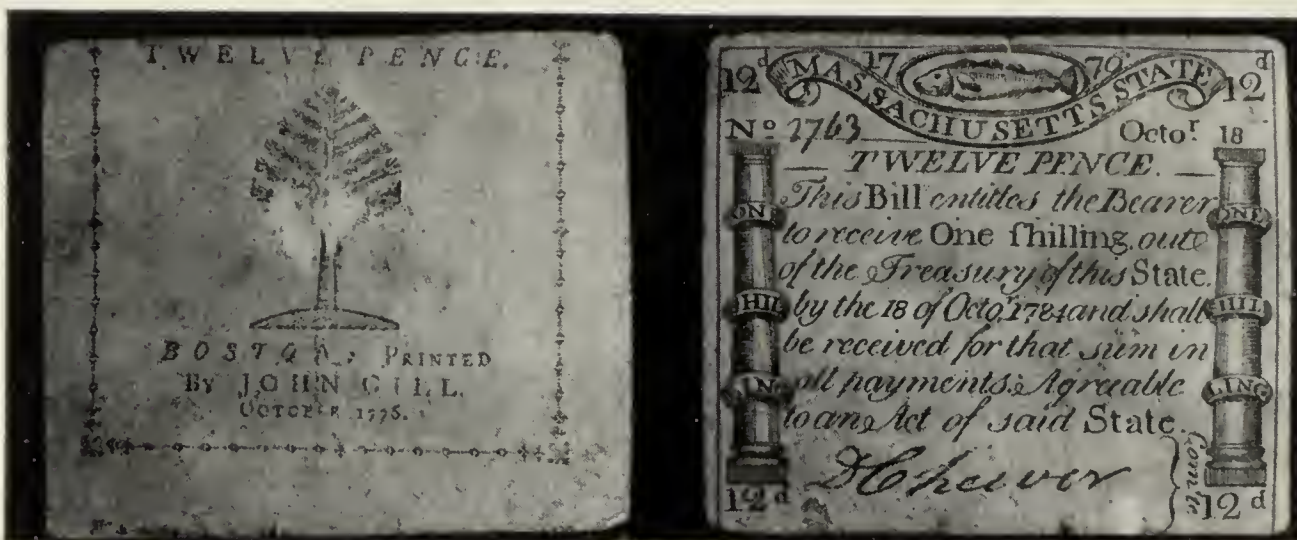 TWELVE PENCE.
BOSTON; PRINTED
By JOHN GILL.
OCTOBER, 1776.
12d 17 76 12d
MASSACHUSETTS STATE
No 2763 Octor 18
TWELVE PENCE.
This Bill entitles the Bearer
to receive One ſhilling out
of the Treasury of this State.
by the 18 of Octor 1784 and shall
be received for that sum in
all payments Agreable
to an Act of said State.
ON
HIL
ING
ONE
HIL
LING
DCheever
Comtee
12d 12d